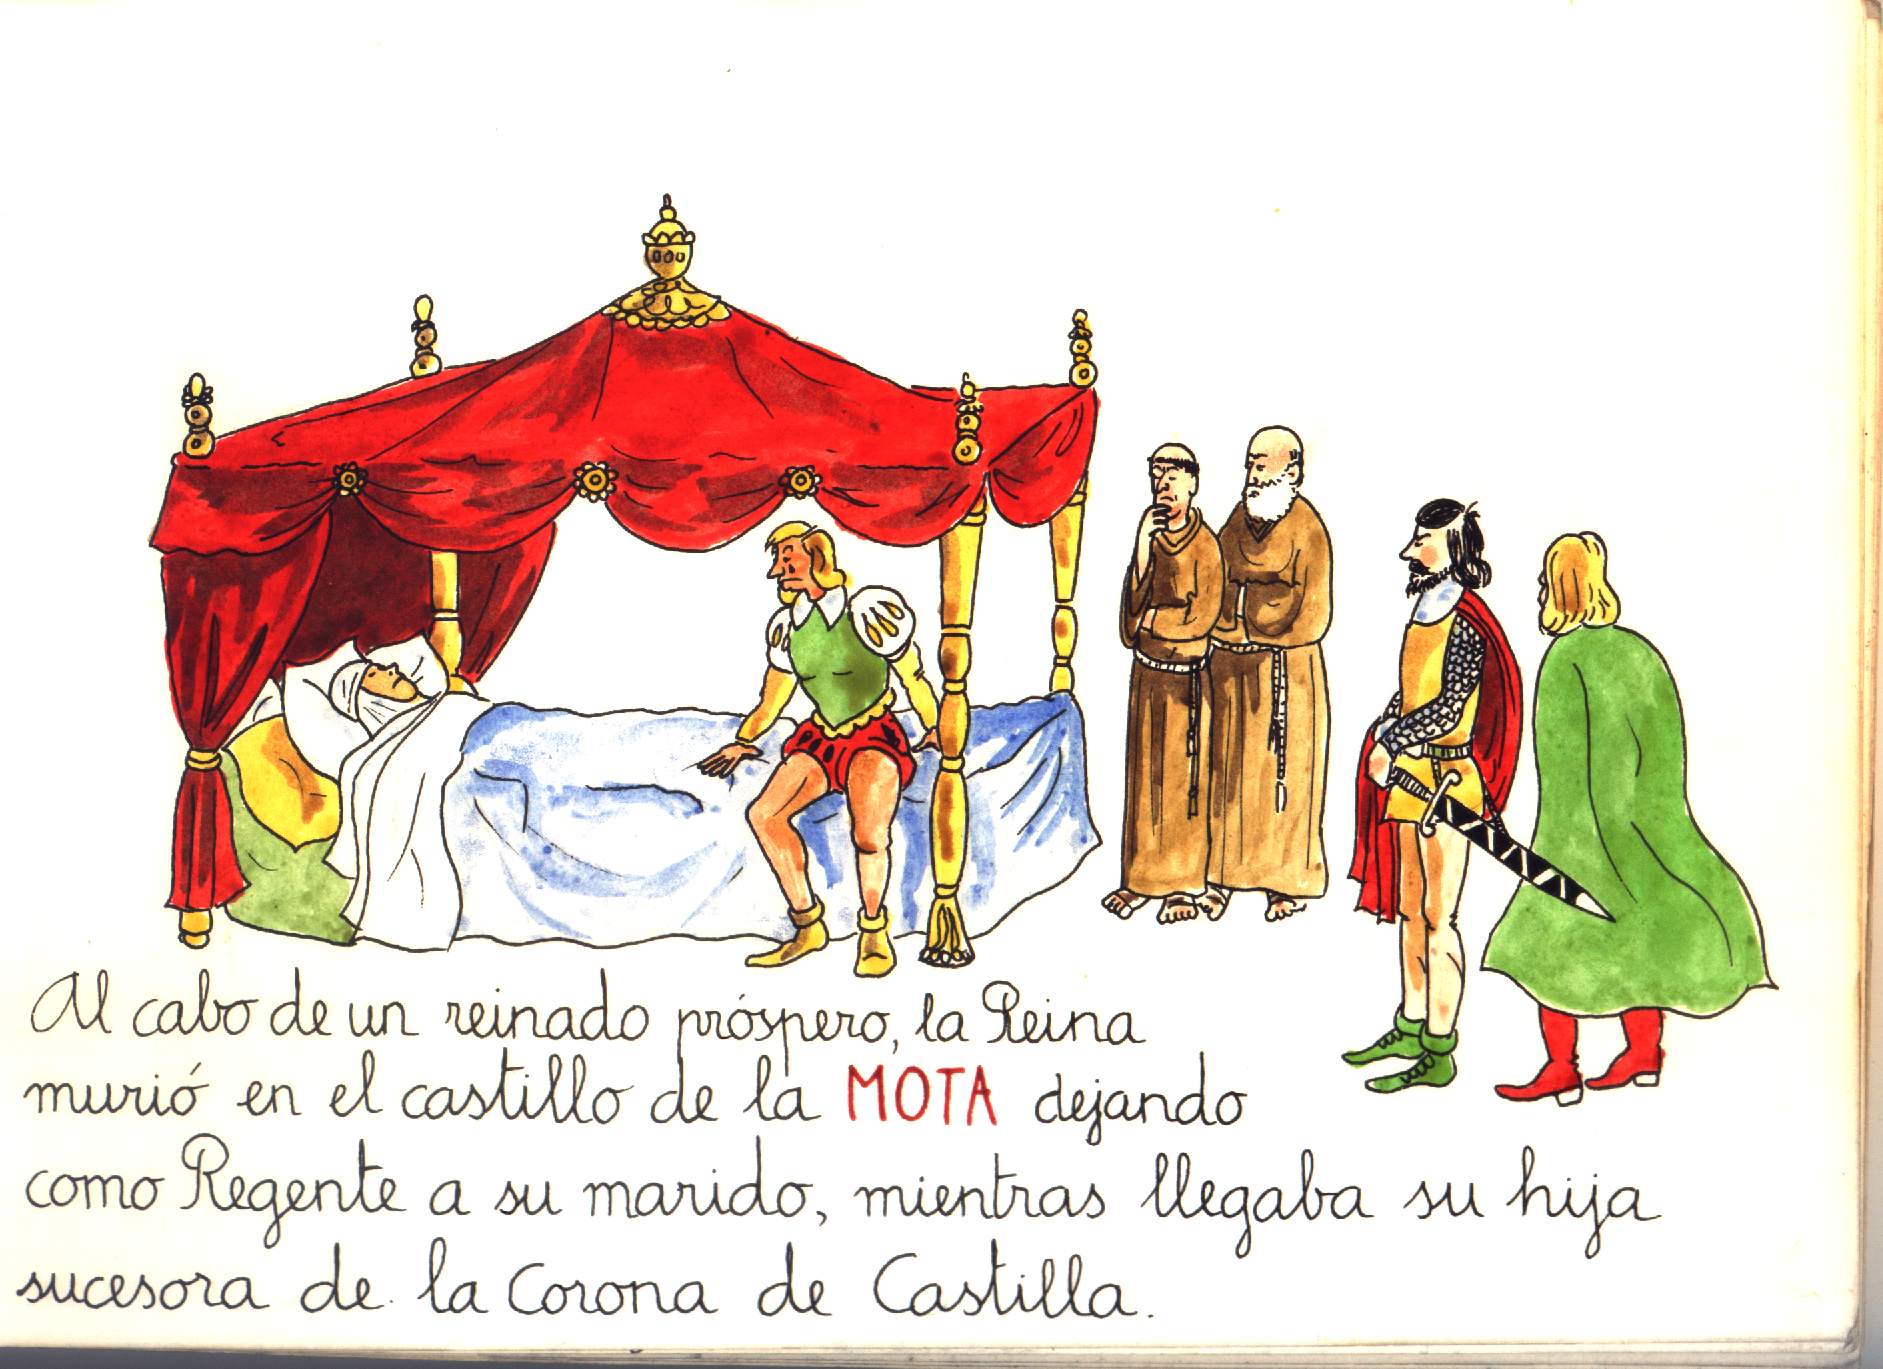 Al cabo de un reinado próspero, la Reina
murió en el castillo de la MOTA dejando
como Regente a su marido, mientras llegaba su hija
sucesora de la Corona de Castilla.